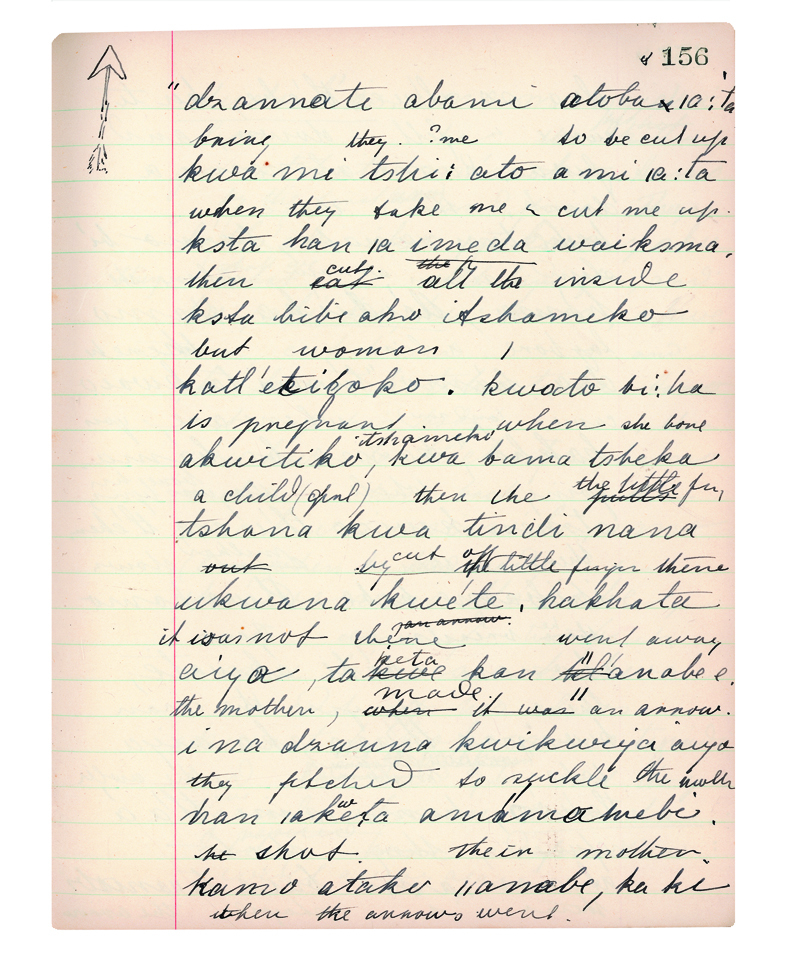 156
"dzannate abami atoba ıa:ta
bring they. ?me to be cut up
kwa mi tshi: ato a mi ıa:ta
when they take me & cut me up.
ksta han ıa imeda waiksma.
then cut all the inside
ksta bibi ako itshameko
but woman
katl'etigoko. kwato bi:ha
is pregnant when she bore
itshameko
akwitiko, kwa bama tsheka
a child (girl) then she the little
tshana kwa tindi nana
out by cut off the little finger there
ukwana kwete. hakhata
an arrow.
it was not there went away
keta
aiya, ta kan ǁanabe e.
made
the mother, when it was " an arrow.
ina dzanna kwikwiya aiya
they fetched to suckle the mother
han ıaketa amamawebi.
he shot. their mother.
kamo atako ǁanabe, ka ki
when the arrows went.